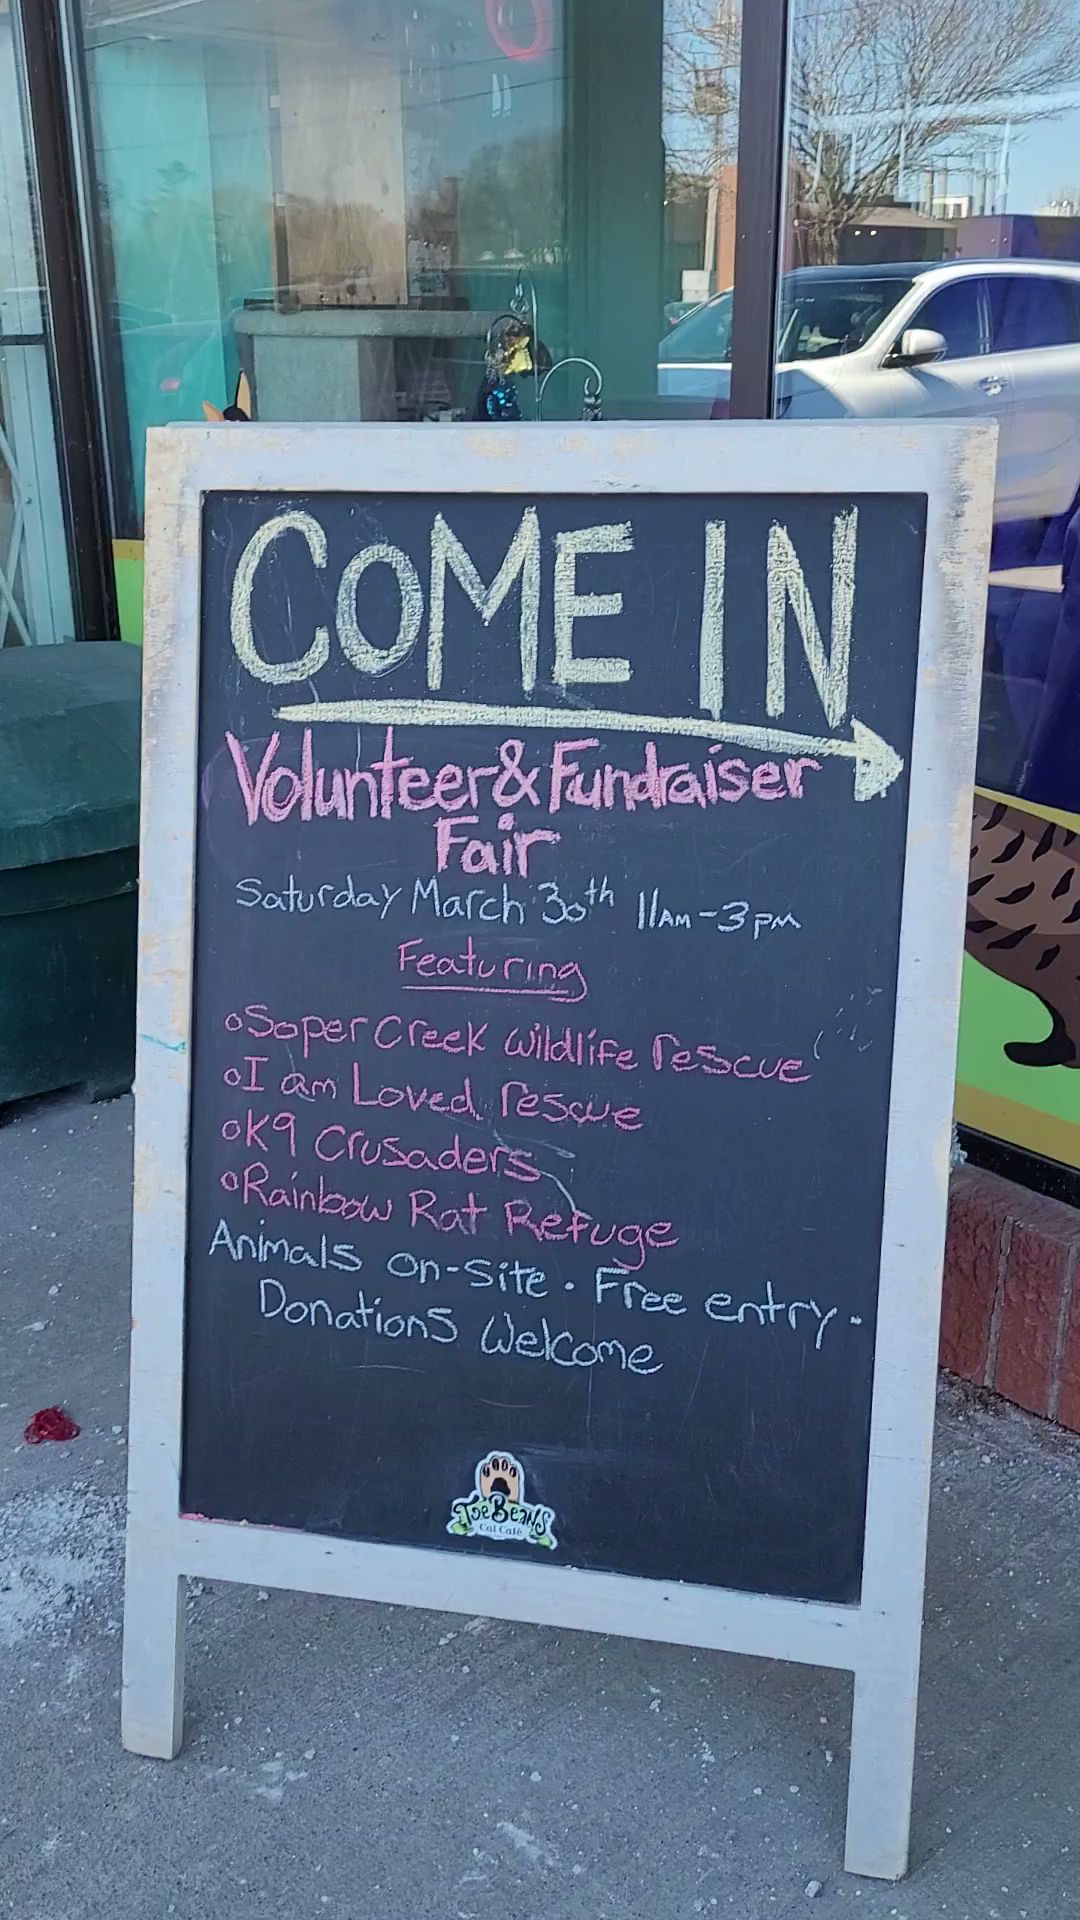 COME IN
Volunteer & Fundraiser
Fair
Saturday March 30th 11AM-3PM
Featuring
o Soper Creek wildlife rescue
o I am Loved rescue
o K9 Crusaders
o Rainbow Rat Refuge
Animals on-site. Free entry.
Donations Welcome
ToeBeans
Cat Café